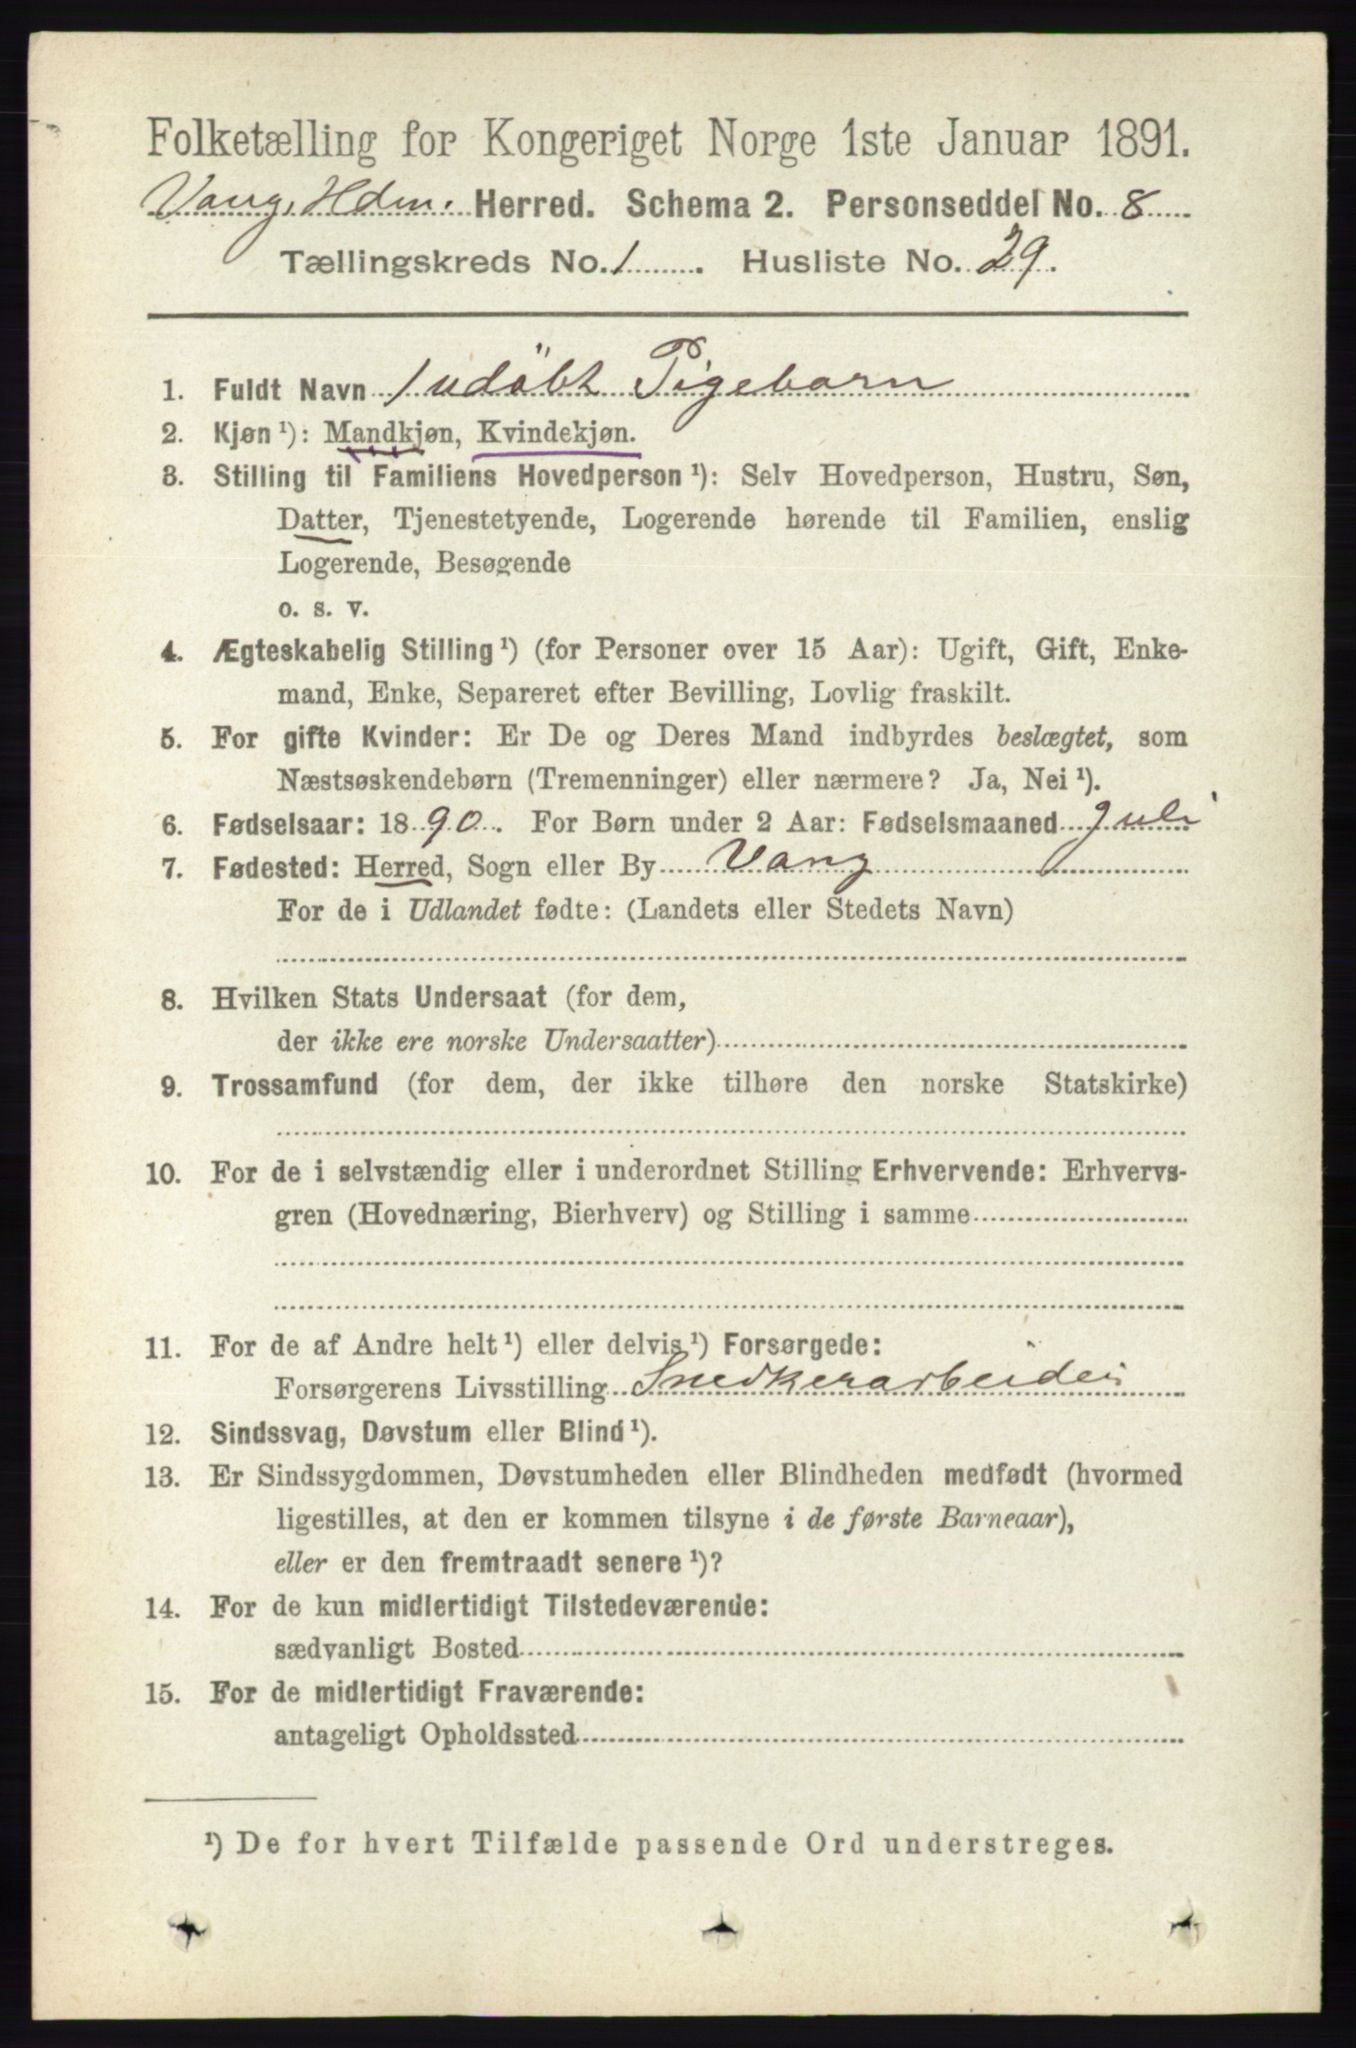 Folketælling for Kongeriget Norge 1ste Januar 1891.
Vang, Hdm. Herred. Schema 2. Personseddel No. 8
Tællingskreds No. 1. Husliste No. 29.
1. Fuldt Navn 1 udöbt Pigebarn
2. Kjøn ¹): Mandkjøn, Kvindekjøn.
3. Stilling til Familiens Hovedperson ¹): Selv Hovedperson, Hustru, Søn,
Datter, Tjenestetyende, Logerende hørende til Familien, enslig
Logerende, Besøgende
o. s. v.
4. Ægteskabelig Stilling ¹) (for Personer over 15 Aar): Ugift, Gift, Enke-
mand, Enke, Separeret efter Bevilling, Lovlig fraskilt.
5. For gifte Kvinder: Er De og Deres Mand indbyrdes beslægtet, som
Næstsøskendebørn (Tremenninger) eller nærmere? Ja, Nei ¹).
6. Fødselsaar: 1890. For Børn under 2 Aar: Fødselsmaaned Juli
7. Fødested: Herred, Sogn eller By Vang
For de i Udlandet fødte: (Landets eller Stedets Navn)
8. Hvilken Stats Undersaat (for dem,
der ikke ere norske Undersaatter)
9. Trossamfund (for dem, der ikke tilhøre den norske Statskirke)
10. For de i selvstændig eller i underordnet Stilling Erhvervende: Erhvervs-
gren (Hovednæring, Bierhverv) og Stilling i samme
11. For de af Andre helt ¹) eller delvis ¹) Forsørgede:
Forsørgerens Livsstilling Snedkerarbeider
12. Sindssvag, Døvstum eller Blind ¹).
13. Er Sindssygdommen, Døvstumheden eller Blindheden medfødt (hvormed
ligestilles, at den er kommen tilsyne i de første Barneaar),
eller er den fremtraadt senere ¹)?
14. For de kun midlertidigt Tilstedeværende:
sædvanligt Bosted
15. For de midlertidigt Fraværende:
antageligt Opholdssted
¹) De for hvert Tilfælde passende Ord understreges.